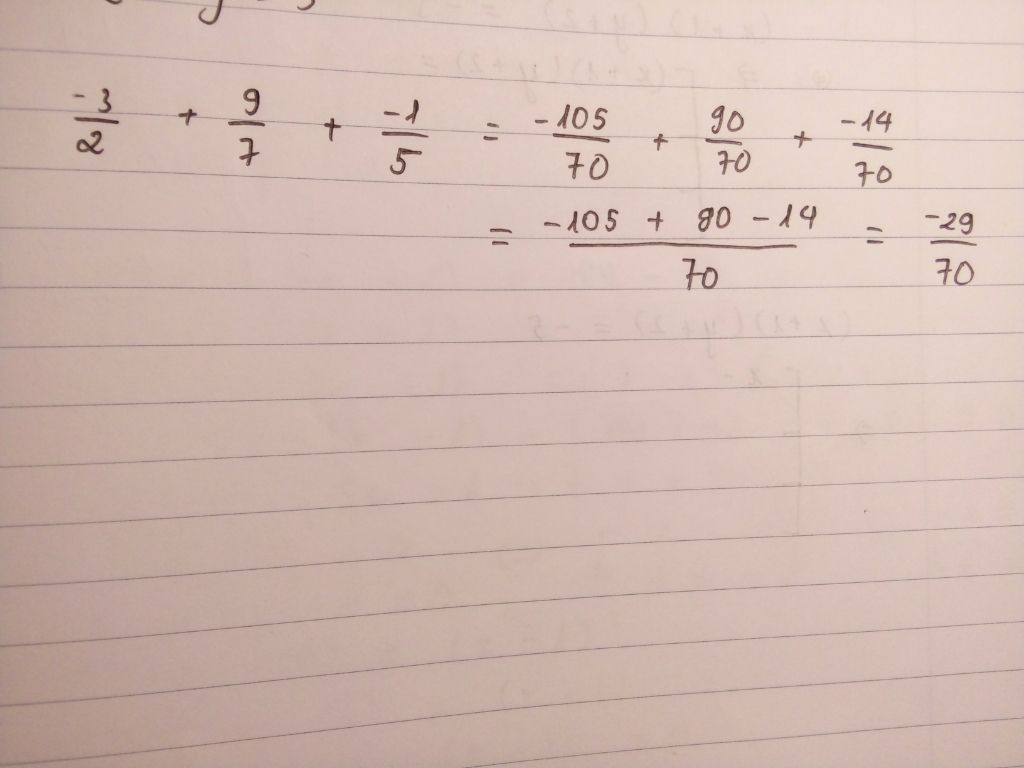 -3/2 + 9/7 + -1/5 = -105/70 + 90/70 + -14/70
= (-105 + 90 - 14)/70 = -29/70